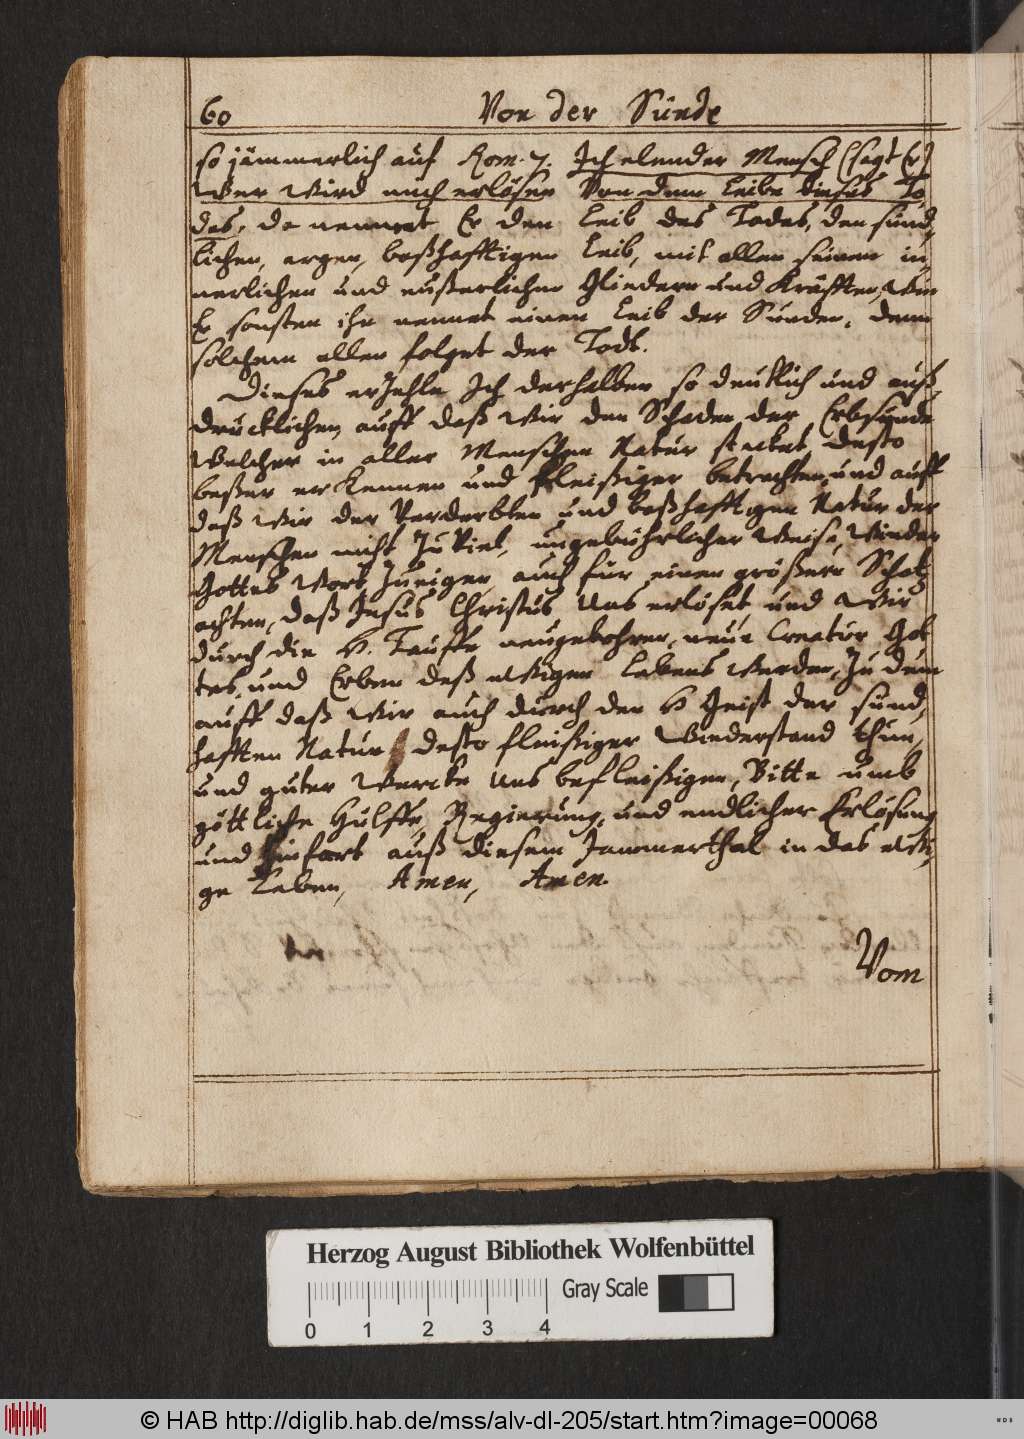 60 Von der Sünde
so jämmerlich auf Rom. 7. Ich elender Mensch (sagt Er)
Wer wird mich erlösen Von dem Leibe dieses To
des, da nennet Er den Leib des Todes, den sünd,
lichen, argen, boßhafftigen Leib, mit allen seinen in,
nerlichen und eußerlichen Gliedern und Kräfften, Wie
Er sonsten ihn nennet einen Leib der Sünden, denn
solchem allen folget der Todt.
Dieses erzehle Ich derhalben so deutlich und auß,
drücklichen, auff daß Wir den Schaden der Erbsünde
Welcher in aller Menschen Natur stecket desto
beßer erkennen und fleißiger betrachten, und auff
daß Wir der Verderbten und boßhafftigen Natur der
Menschen nicht zu Viel, ungebührlicher Weise, Wieder
Gottes Wort zueigen, auch für einen größern Schatz
achten, daß Jesus Christus Uns erlöset, und Wir
durch die H. Tauffe neugebohren, neue Creatur Got
tes, und Erben deß ewigen Lebens Werden, Zu dem
auff daß Wir auch durch den H Geist der sünd,
hafften Natur desto fleißiger Wiederstand thun,
und guter Wercke Uns befleißigen, Bitte umb
göttliche Hülffe, Regierung, und endlicher Erlösung
und hinfart auß diesem Jammerthal in das ewi,
ge Leben, Amen, Amen.
Vom
Herzog August Bibliothek Wolfenbüttel
Gray Scale
0 1 2 3 4
© HAB http://diglib.hab.de/mss/alv-dl-205/start.htm?image=00068